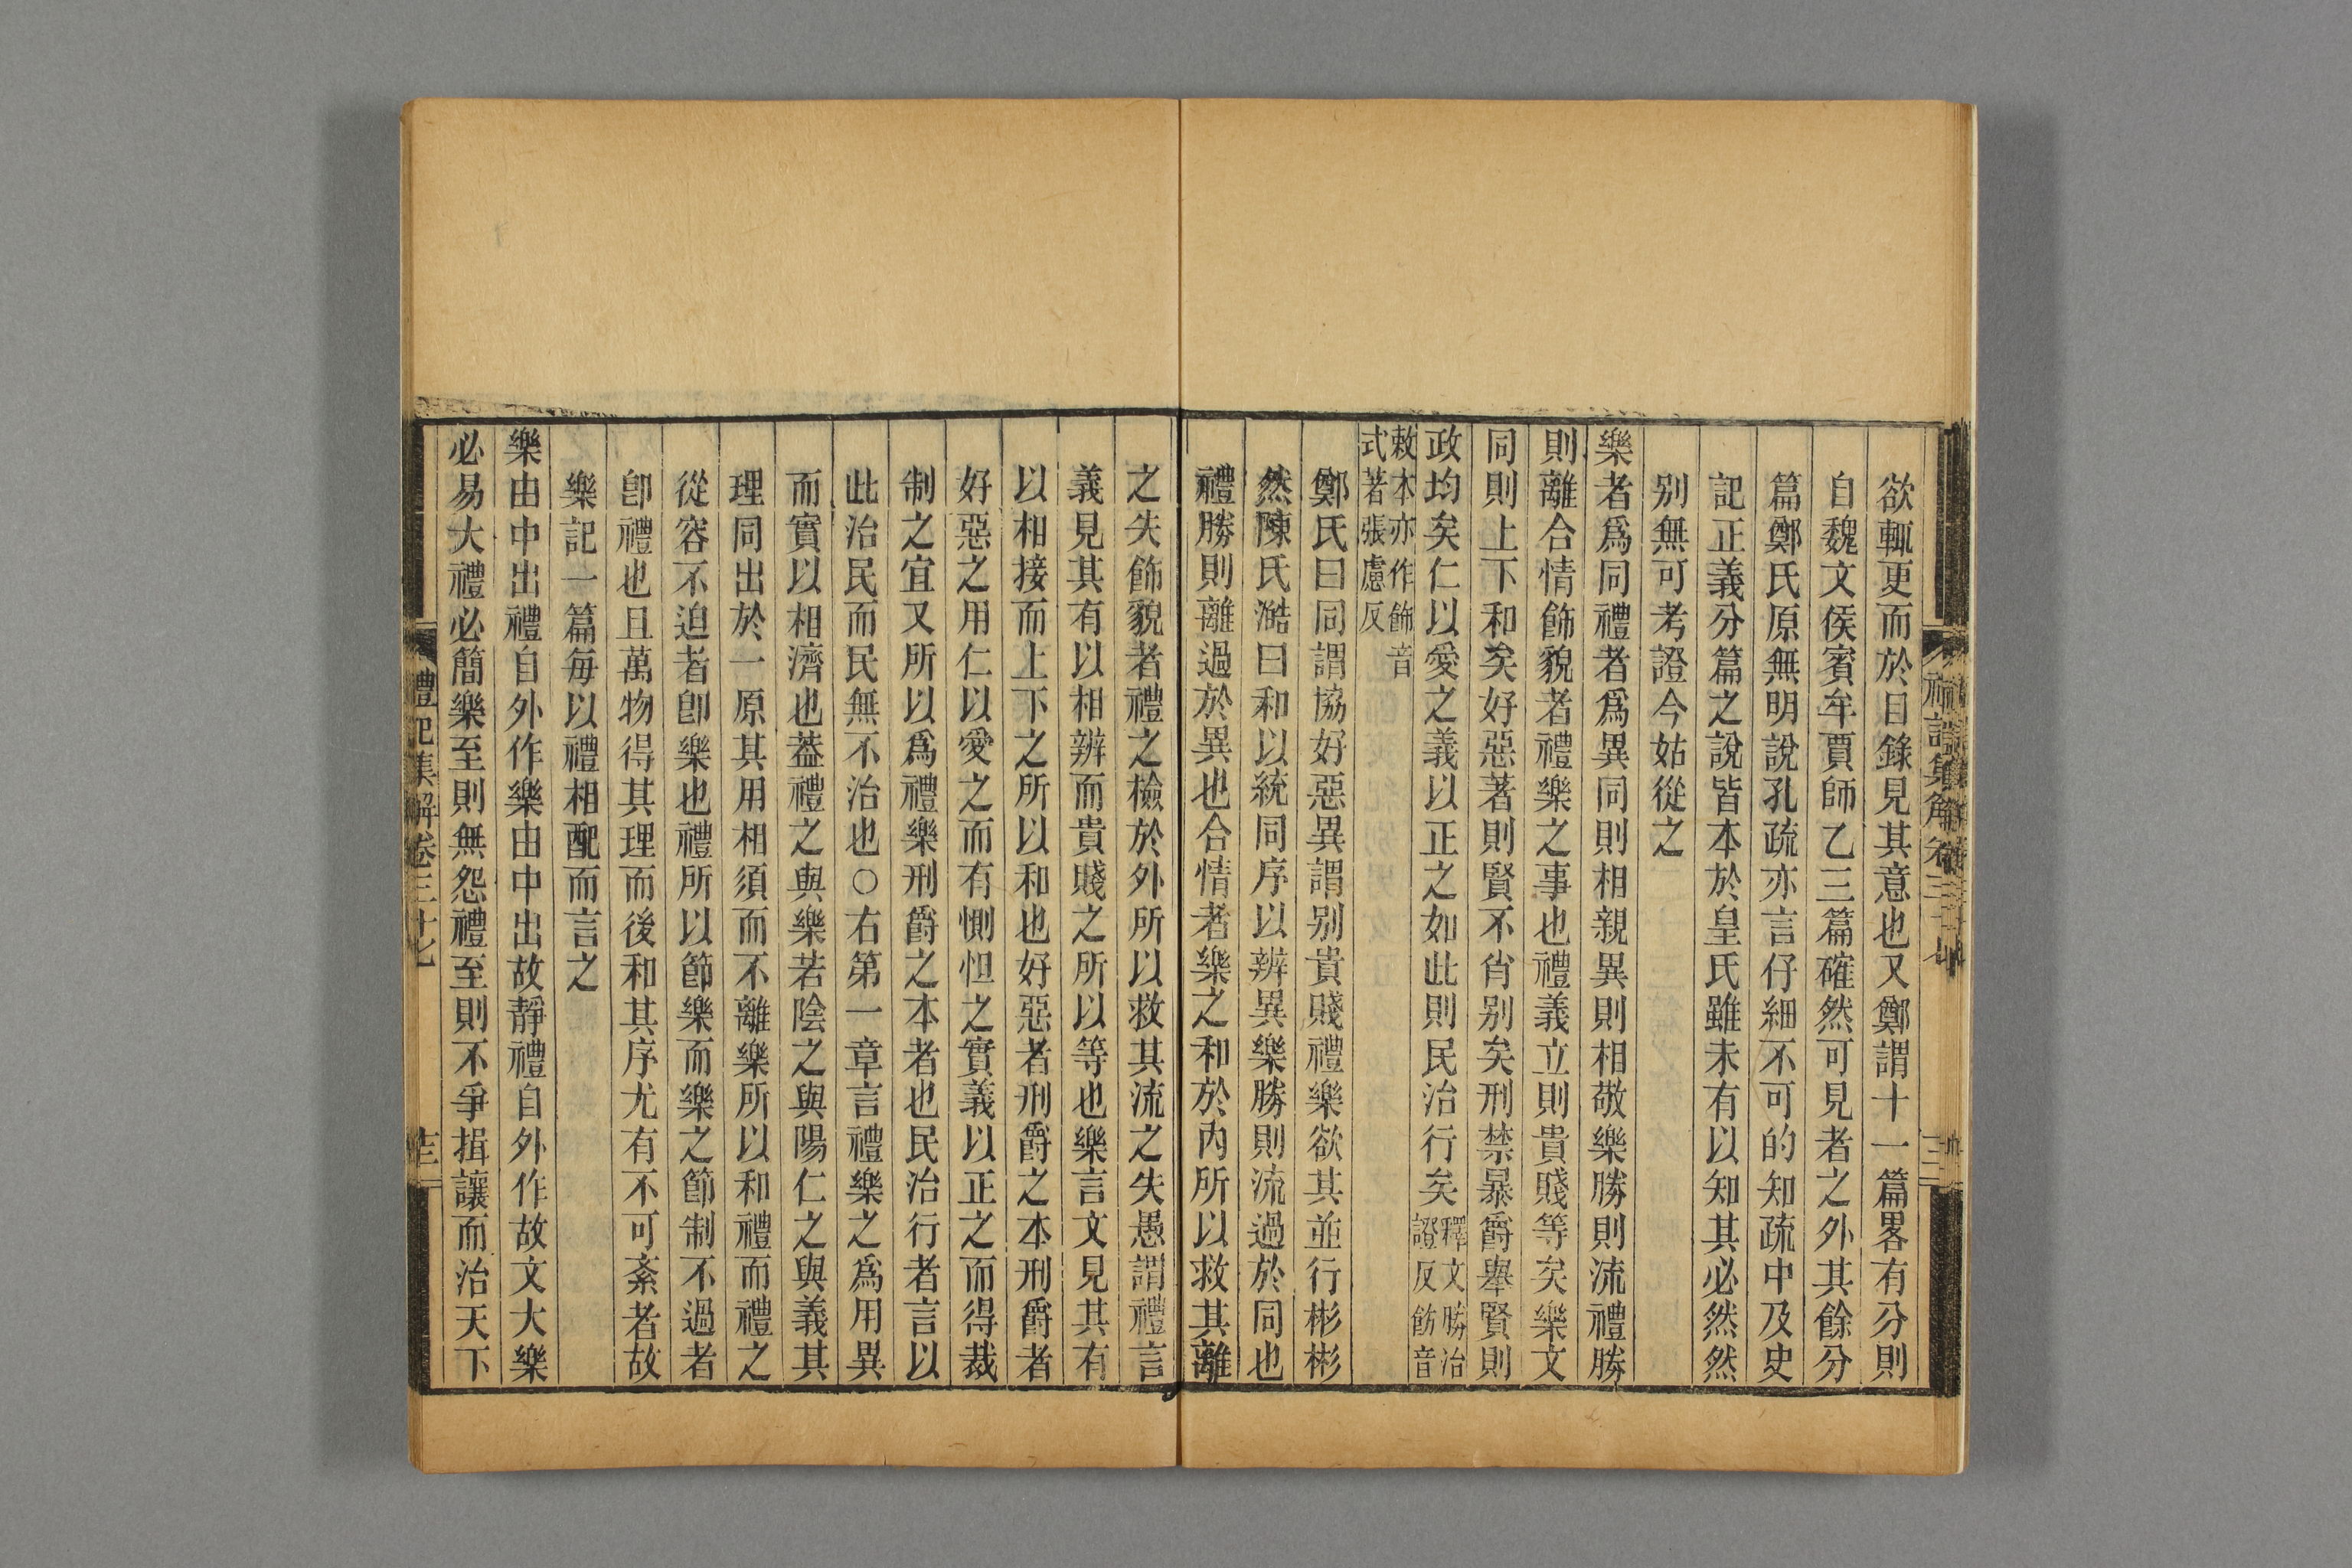 欲輒更而於目錄見其意也又鄭謂十一篇畧有分則
自魏文侯賓牟賈師乙三篇確然可見者之外其餘分
篇鄭氏原無明說孔疏亦言仔細不可的知疏中及史
記正義分篇之說皆本於皇氏雖未有以知其必然然
别無可考證今姑從之
樂者爲同禮者爲異同則相親異則相敬樂勝則流禮勝
則離合情飾貌者禮樂之事也禮義立則貴賤等矣樂文
同則上下和矣好惡著則賢不肖别矣刑禁暴爵舉賢則
政均矣仁以愛之義以正之如此則民治行矣釋文勝冶證反飭音
敕本亦作飾音式著張慮反
鄭氏曰同謂協好惡異謂别貴賤禮樂欲其並行彬彬
然陳氏澔曰和以統同序以辨異樂勝則流過於同也
禮勝則離過於異也合情者樂之和於內所以救其離
之失飾貌者禮之檢於外所以救其流之失愚謂禮言
義見其有以相辨而貴賤之所以等也樂言文見其有
以相接而上下之所以和也好惡者刑爵之本刑爵者
好惡之用仁以愛之而有惻怛之實義以正之而得裁
制之宜又所以爲禮樂刑爵之本者也民治行者言以
此治民而民無不治也○右第一章言禮樂之爲用異
而實以相濟也葢禮之與樂若陰之與陽仁之與義其
理同出於一原其用相須而不離樂所以和禮而禮之
從容不迫者卽樂也禮所以節樂而樂之節制不過者
卽禮也且萬物得其理而後和其序尤有不可紊者故
樂記一篇每以禮相配而言之
樂由中出禮自外作樂由中出故靜禮自外作故文大樂
必易大禮必簡樂至則無怨禮至則不爭揖讓而治天下
禮記集解卷三十七